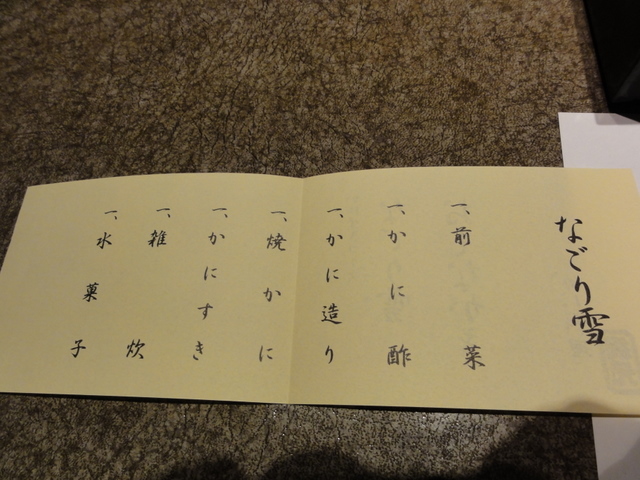 なごり雪
一、前菜
一、かに酢
一、かに造り
一、焼かに
一、かにすき
一、雑炊
一、水菓子